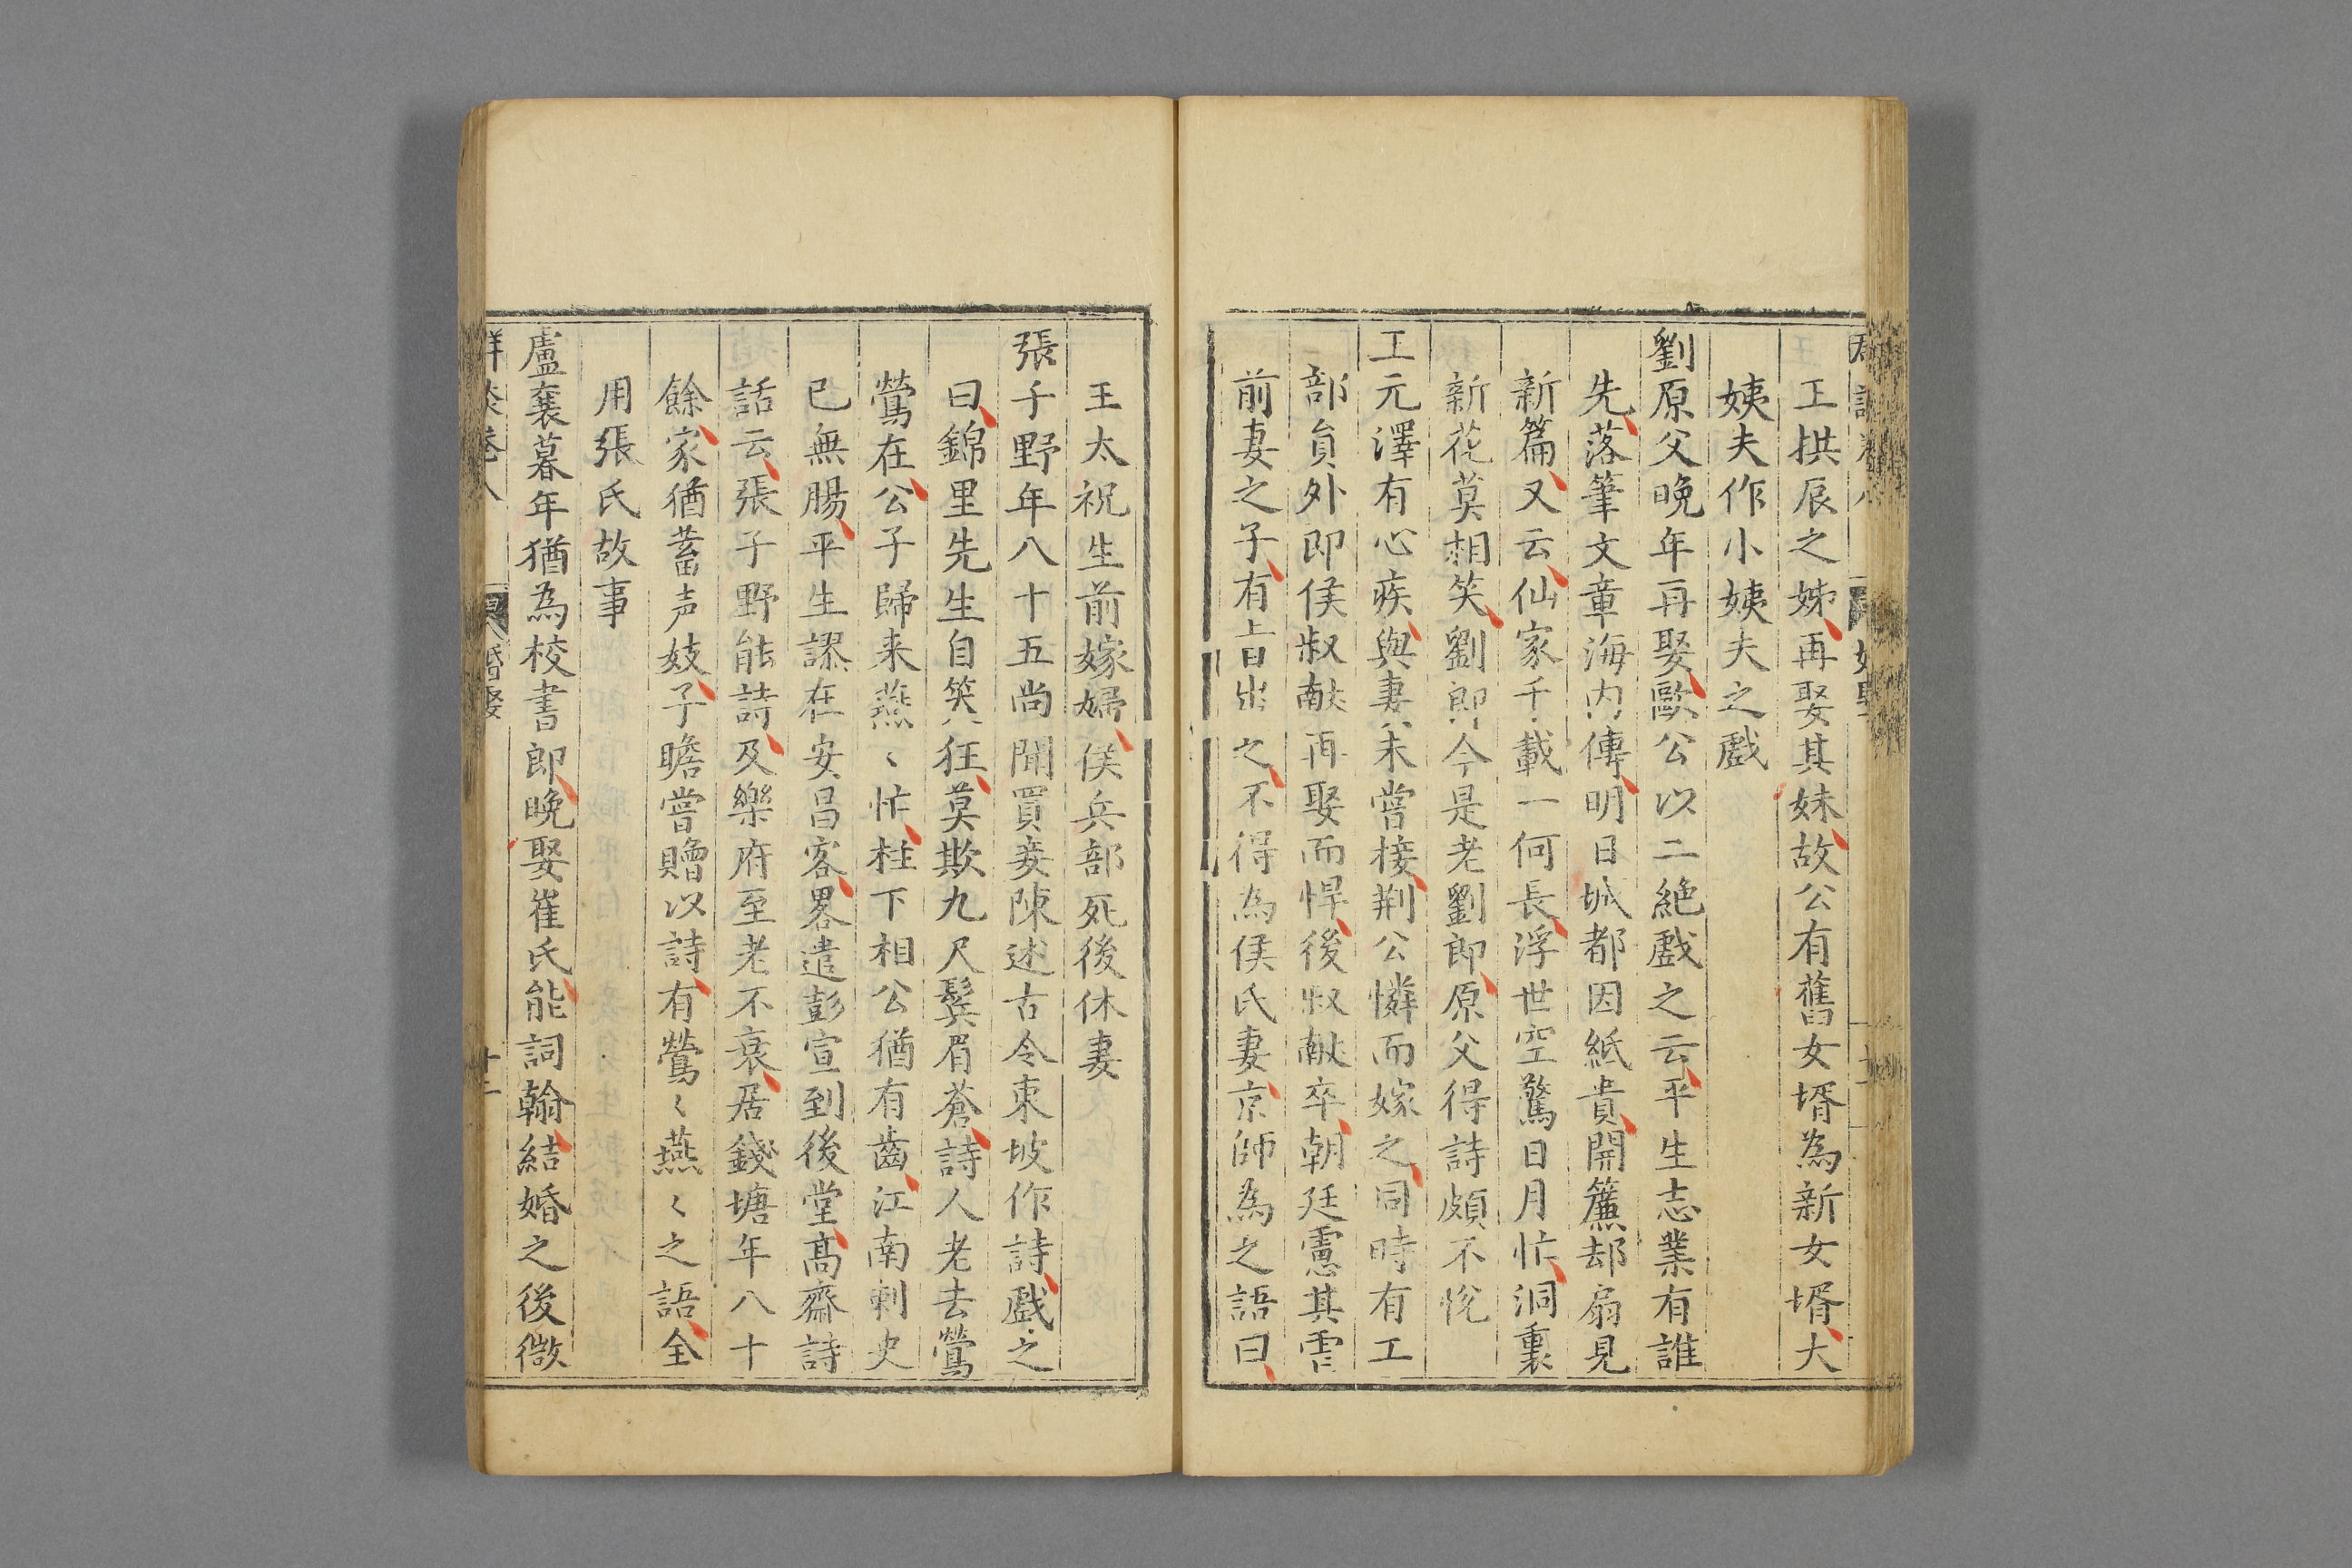 王拱辰之姊再娶其妹故公有舊女壻為新女壻大
姨夫作小姨夫之戲
劉原父晚年再娶歐公以二絶戲之云平生志業有誰
先落筆文章海内傳明日城都因紙貴開簾却扇見
新篇又云仙家千載一何長浮世空驚日月忙洞裏
新花莫相笑劉郎今是老劉郎原父得詩頗不悅
王元澤有心疾與妻未嘗接荆公憐而嫁之同時有工
部員外郎侯叔献再娶而悍後叔献卒朝廷慮其雪
前妻之子有旨出之不得為侯氏妻京師為之語曰
王太祝生前嫁婦侯兵部死後休妻
張子野年八十五尚聞買妾陳述古令東坡作詩戲之
曰錦里先生自笑狂莫欺九尺鬢眉蒼詩人老去鶯
鶯在公子歸来燕〻忙柱下相公猶有齒江南刺史
已無腸平生謬在安昌客畧遣彭宣到後堂髙齋詩
話云張子野能詩及樂府至老不衰居錢塘年八十
餘家猶蓄声妓子瞻嘗贈以詩有鶯〻燕〻之語全
用張氏故事
盧褒暮年猶為校書郎晚娶崔氏能詞翰結婚之後微
群談卷八 婚娶 十二